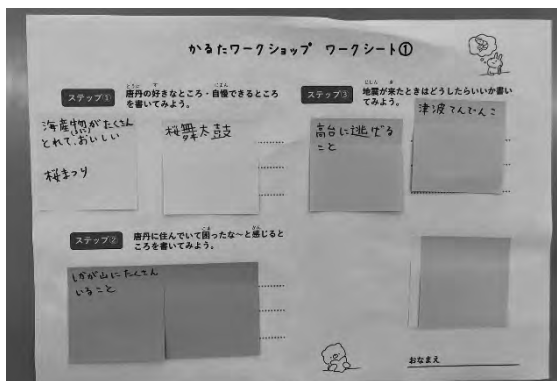 かるたワークショップ ワークシート①
ステップ①
唐丹の好きなところ・自慢できるところ
を書いてみよう。
海産物がたくさん
とれて、おいしい
桜まつり
桜舞太鼓
ステップ②
唐丹に住んでいて困ったな～と感じると
ころを書いてみよう。
しかが山にたくさん
いること
ステップ③
地震が来たときはどうしたらいいか書い
てみよう。
高台に逃げる
こと
津波てんでんこ
おなまえ